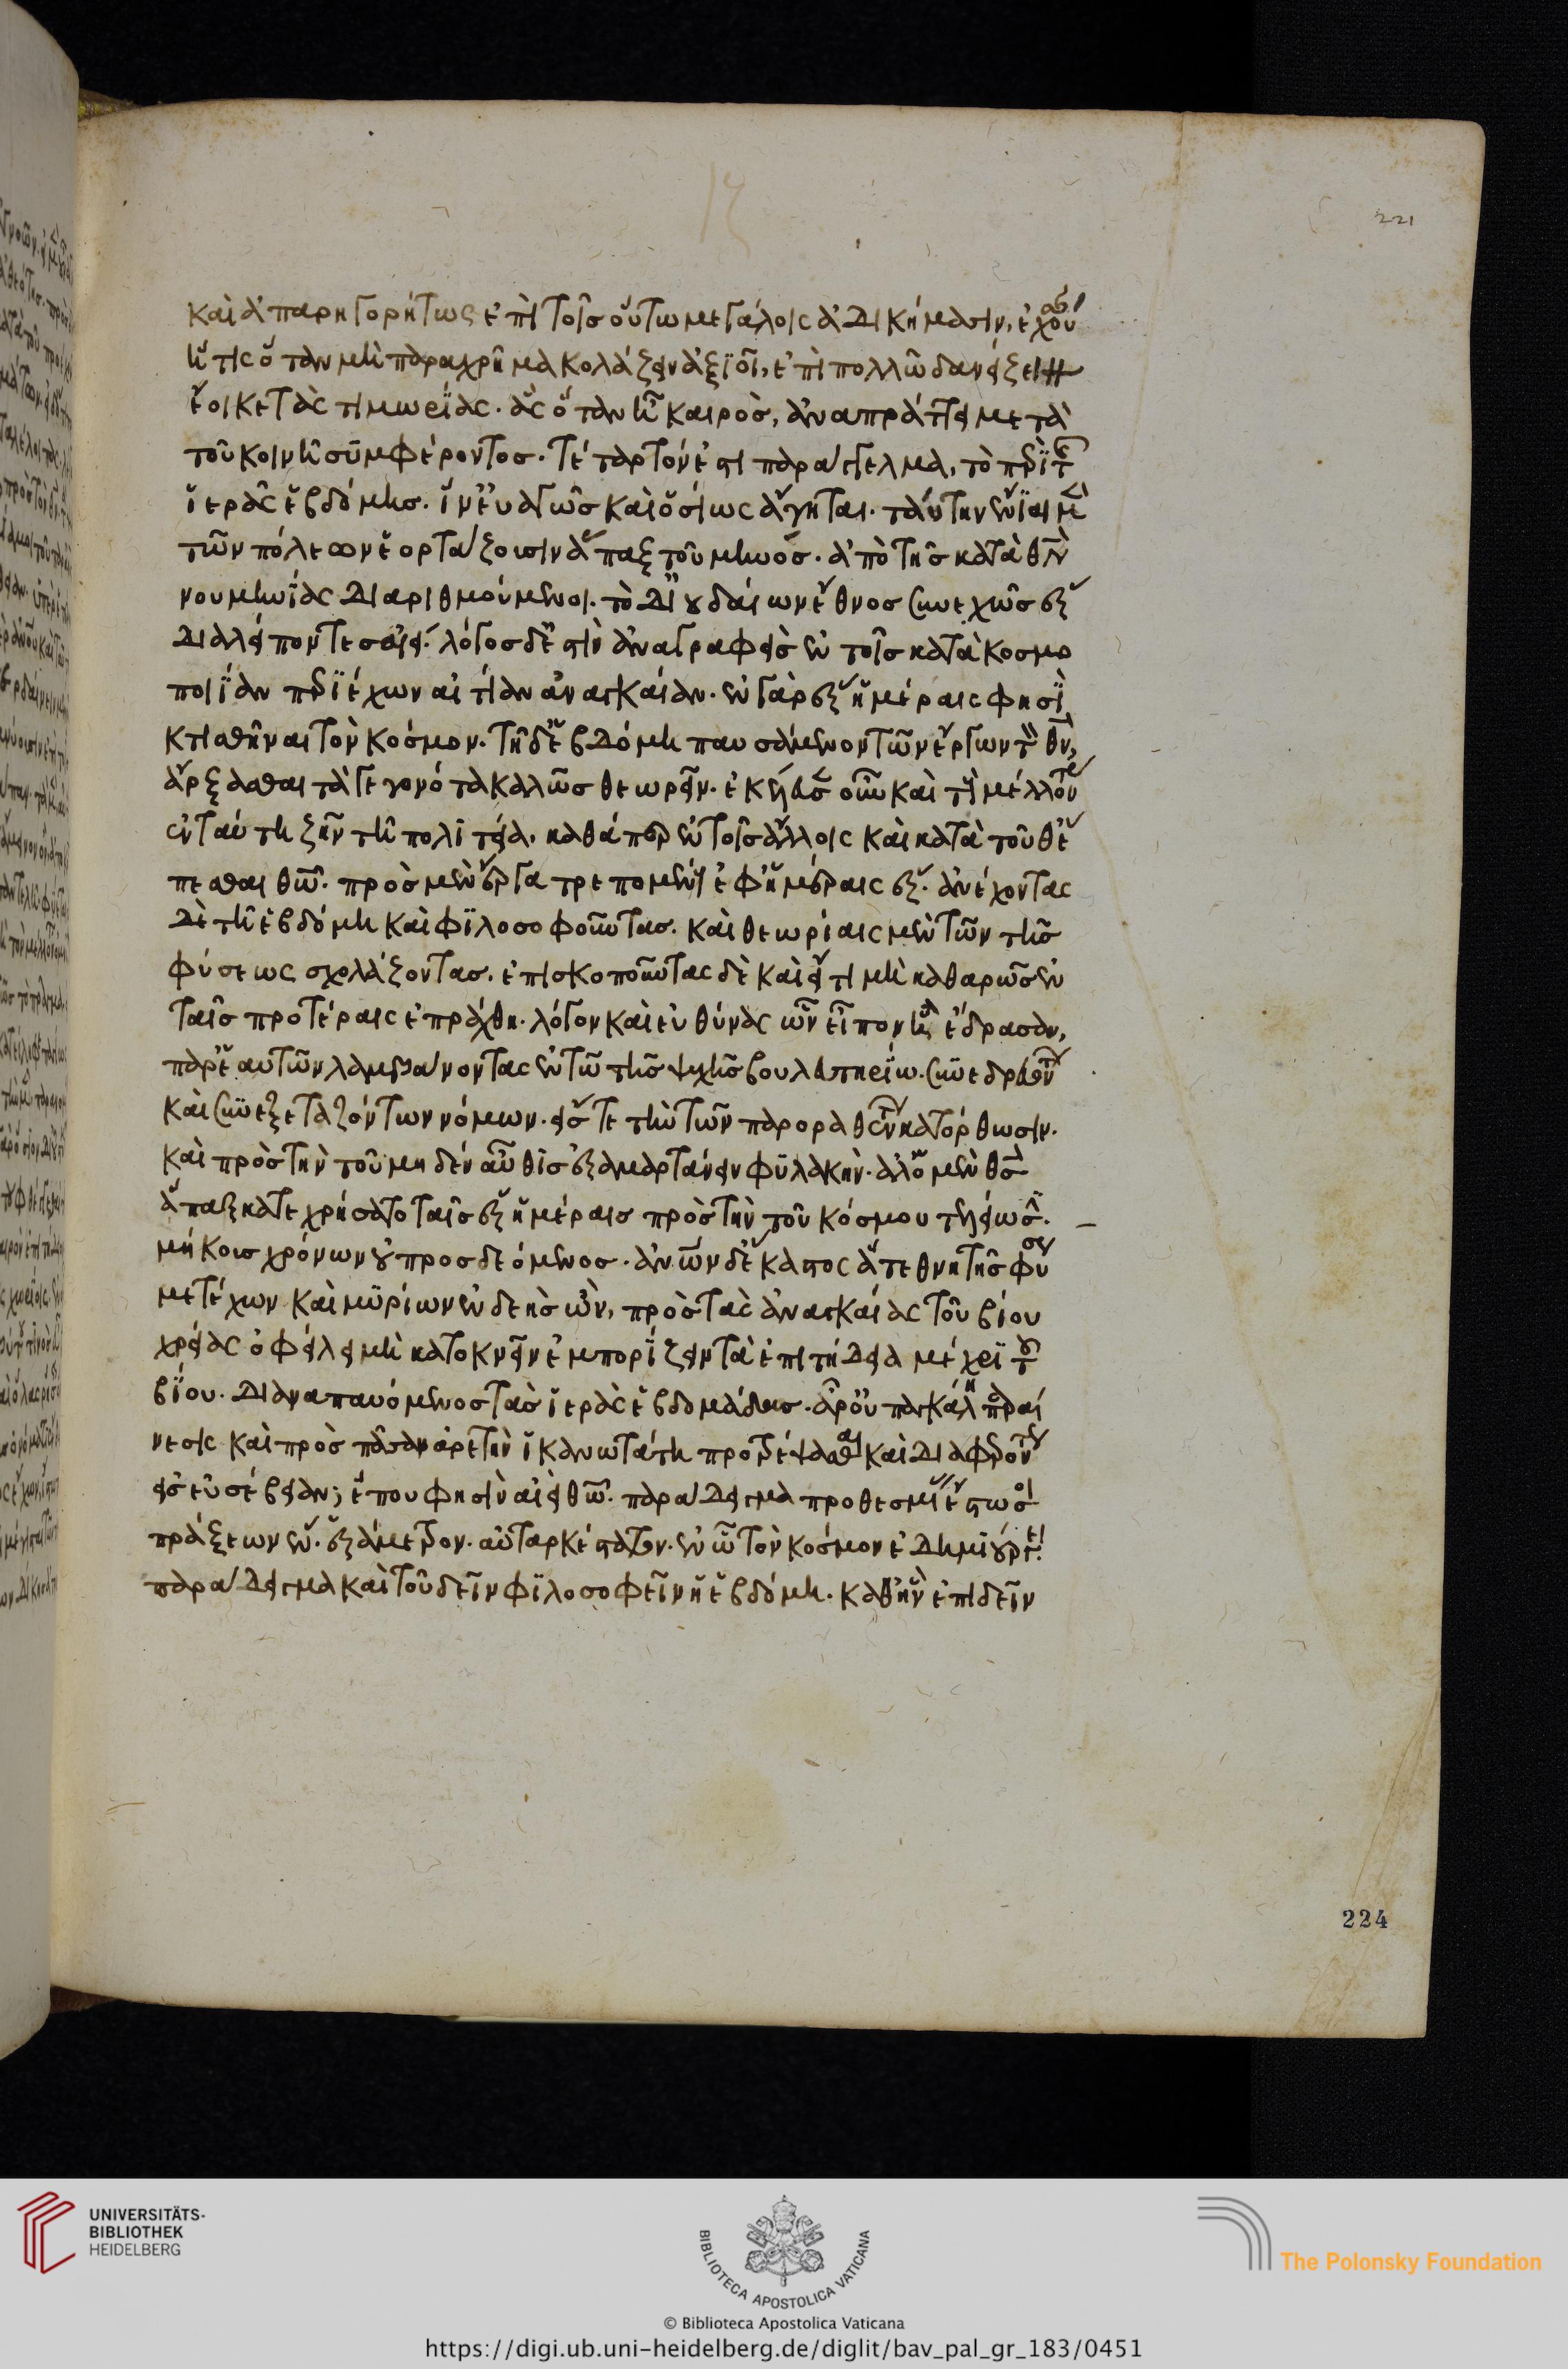 καὶ ἀπαρηγορήτως ἐπὶ τοῖς οὕτω μεγάλοις ἀδικήμασιν, ἐχού
ἥτις ὅταν μὴ παραχρῆμα κολάζειν ἀξϊοῖ, ἐπὶ πολλῶ δανείζει
ἔοικε τὰς τιμωρΐας. ἃς ὅταν ἦ καιρὸς, ἀναπράττει μετὰ
τοῦ κοινῆ συμφέροντος. τέταρτόν ἐστι παράγγελμα, τὸ περὶ τῆς
ἱερᾶς ἑβδόμης. ἵν' εὐαγῶς καὶ ὁσίως ἄγηται. ταύτην ἔνιαι μὲν
τῶν πόλεων ἑορτάζουσιν ἅπαξ τοῦ μηνός. ἀπὸ τῆς κατὰ θν
νουμηνΐας διαριθμούμενοι. τὸ δ' ἰουδαίων ἔθνος συνεχῶς ἓξ
διαλείποντες ἀεί. λόγος δ' ἐστὶν ἀναγραφεὶς ἐν τοῖς κατὰ κοσμο
ποιΐαν περιέχων αἰτίαν ἀναγκαίαν. ἐν γὰρ ἓξ ἡμέραις φησὶ
κτισθῆναι τὸν κόσμον. τῆ δ' ἑβδόμη παυσάμενον τῶν ἔργων τὸν θν,
ἄρξασθαι τὰ γεγονότα καλῶς θεωρεῖν. ἐκέλευσεν οὖν καὶ τοὺς μέλλοντ
ἐν ταύτη ζῆν τῆ πολιτεία. καθάπερ ἐν τοῖς ἄλλοις καὶ κατὰ τοῦθ' ἕ
πεσθαι θῶ. πρὸς μὲν ἔργα τρεπομένους ἐφ' ἡμέραις ἕξ. ἀνέχοντας
δὲ τῆ ἑβδόμη καὶ φιλοσοφοῦντας. καὶ θεωρίαις μὲν τῶν τῆς
φύσεως σχολάζοντας. ἐπισκοποῦντας δὲ καὶ εἴ τι μὴ καθαρῶς ἐν
ταῖς προτέραις ἐπράχθη. λόγον καὶ εὐθύνας ὧν εἶπον ἢ ἔδρασαν,
παρ' ἑαυτῶν λαμβάνοντας ἐν τῶ τῆς ψυχῆς βουλευτηρίω. συνεδρευόντ
καὶ συνεξεταζόντων νόμων. εἴς τε τὴν τῶν παροραθέντων κατόρθωσιν.
καὶ πρὸς τὴν τοῦ μηδὲν αὖθις ἐξαμαρτάνειν φυλακὴν. ἀλλ' ὁ μὲν θς
ἅπαξ κατεχρήσατο ταῖς ἓξ ἡμέραις πρὸς τὴν τοῦ κόσμου τελείωσιν.
μήκους χρόνων οὐ προσδεόμενος. ἀνων δ' ἕκαστος ἅτε θνητῆς φύσε
μετέχων καὶ μυρίων ἐνδεὴς ὢν, πρὸς τὰς ἀναγκαίας τοῦ βίου
χρείας ὀφείλει μὴ κατοκνεῖν ἐμπορίζειν τὰ ἐπιτήδεια μέχρι τοῦ
βΐου. διαναπαυόμενος τὰς ἱερὰς ἑβδομάδας. ἆρ' οὐ παγκάλη παραί
νεσις καὶ πρὸς πᾶσαν ἀρετὴν ἱκανωτάτη προτρέψασθαι καὶ διαφερόντ
εἰς εὐσέβειαν; ἕπου φησὶν ἀεὶ θῶ. παράδειγμα προθεσμίας ἔστω σοι
πράξεων ἓν. ἑξάμετρον. αὐταρκέστατον. ἐν ὧ τὸν κόσμον ἐδημιούργει.
παράδειγμα καὶ τοῦ δεῖν φιλοσοφεῖν ἡ ἑβδόμη. καθ' ἣν ἐπιδεῖν
221
224
UNIVERSITÄTS-
BIBLIOTHEK
HEIDELBERG
BIBLIOTECA APOSTOLICA VATICANA
The Polonsky Foundation
© Biblioteca Apostolica Vaticana
https://digi.ub.uni-heidelberg.de/diglit/bav_pal_gr_183/0451